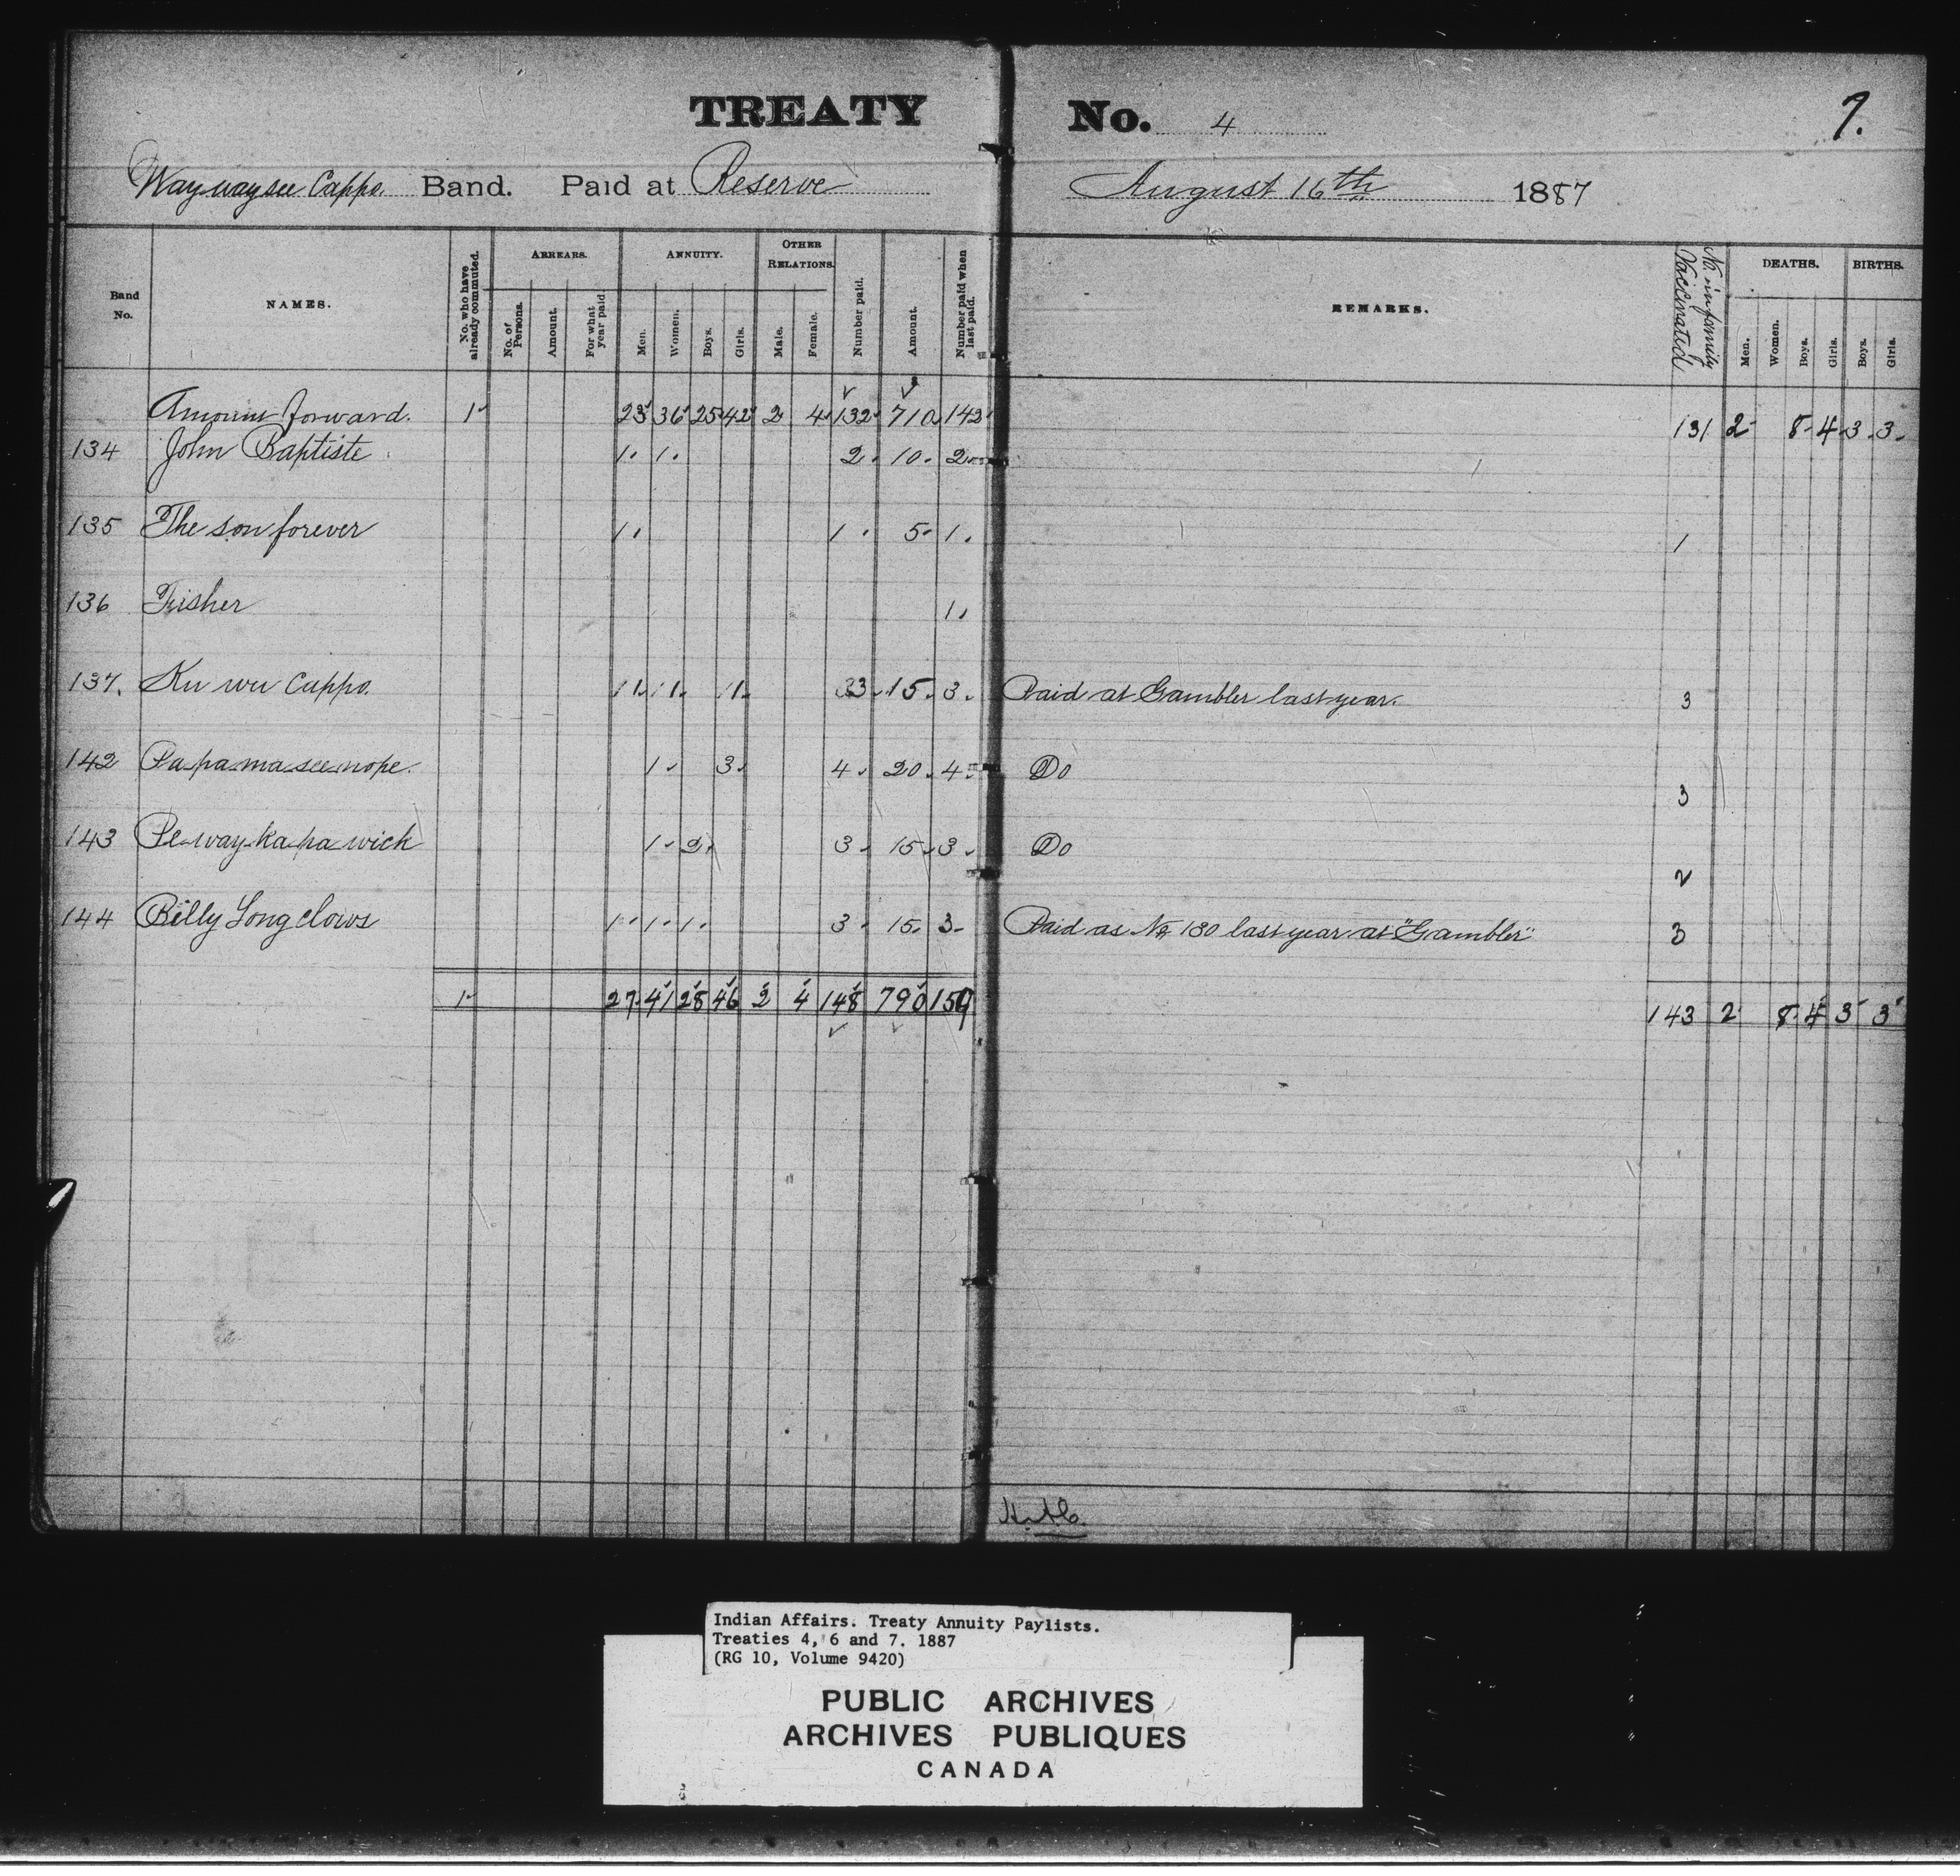 TREATY No. 4
7.
Way way see Cappo. Band. Paid at Reserve August 16th 1887
Band No. NAMES. No. who have already commuted. ARREARS. No. of Persons. Amount. For what year paid ANNUITY. Men. Women. Boys. Girls. OTHER RELATIONS. Male. Female. Number paid. Amount. Number paid when last paid. REMARKS. No. in family Vaccinated DEATHS. Men. Women. Boys. Girls. BIRTHS. Boys. Girls.
Amount forward. 1 23 36 25 42 2 4 132 710 142 131 2 8 4 3 3
134 John Baptiste 1 1 2 10 2
135 The son forever 1 1 5 1 1
136 Fisher 1
137. Ku wu Cappo. 1 1 1 3 15 3 Paid at Gambler last year. 3
142 Pa pa ma see nope. 1 3 4 20 4 Do 3
143 Pe way ka pa wick 1 2 3 15 3 Do 2
144 Billy Long claws 1 1 1 3 15 3 Paid as No 130 last year at "Gambler" 3
1 27 41 28 46 2 4 148 790 159 143 2 8 4 3 3
Indian Affairs. Treaty Annuity Paylists.
Treaties 4, 6 and 7. 1887
(RG 10, Volume 9420)
PUBLIC ARCHIVES
ARCHIVES PUBLIQUES
CANADA